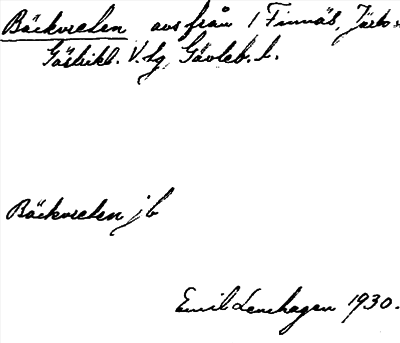 Bäckvreten avs från 1 Finnäs, Järbo s
Gästrikl. V. tg, Gävleb. l.
Bäckvreten jb
Emil Lenhagen 1930.